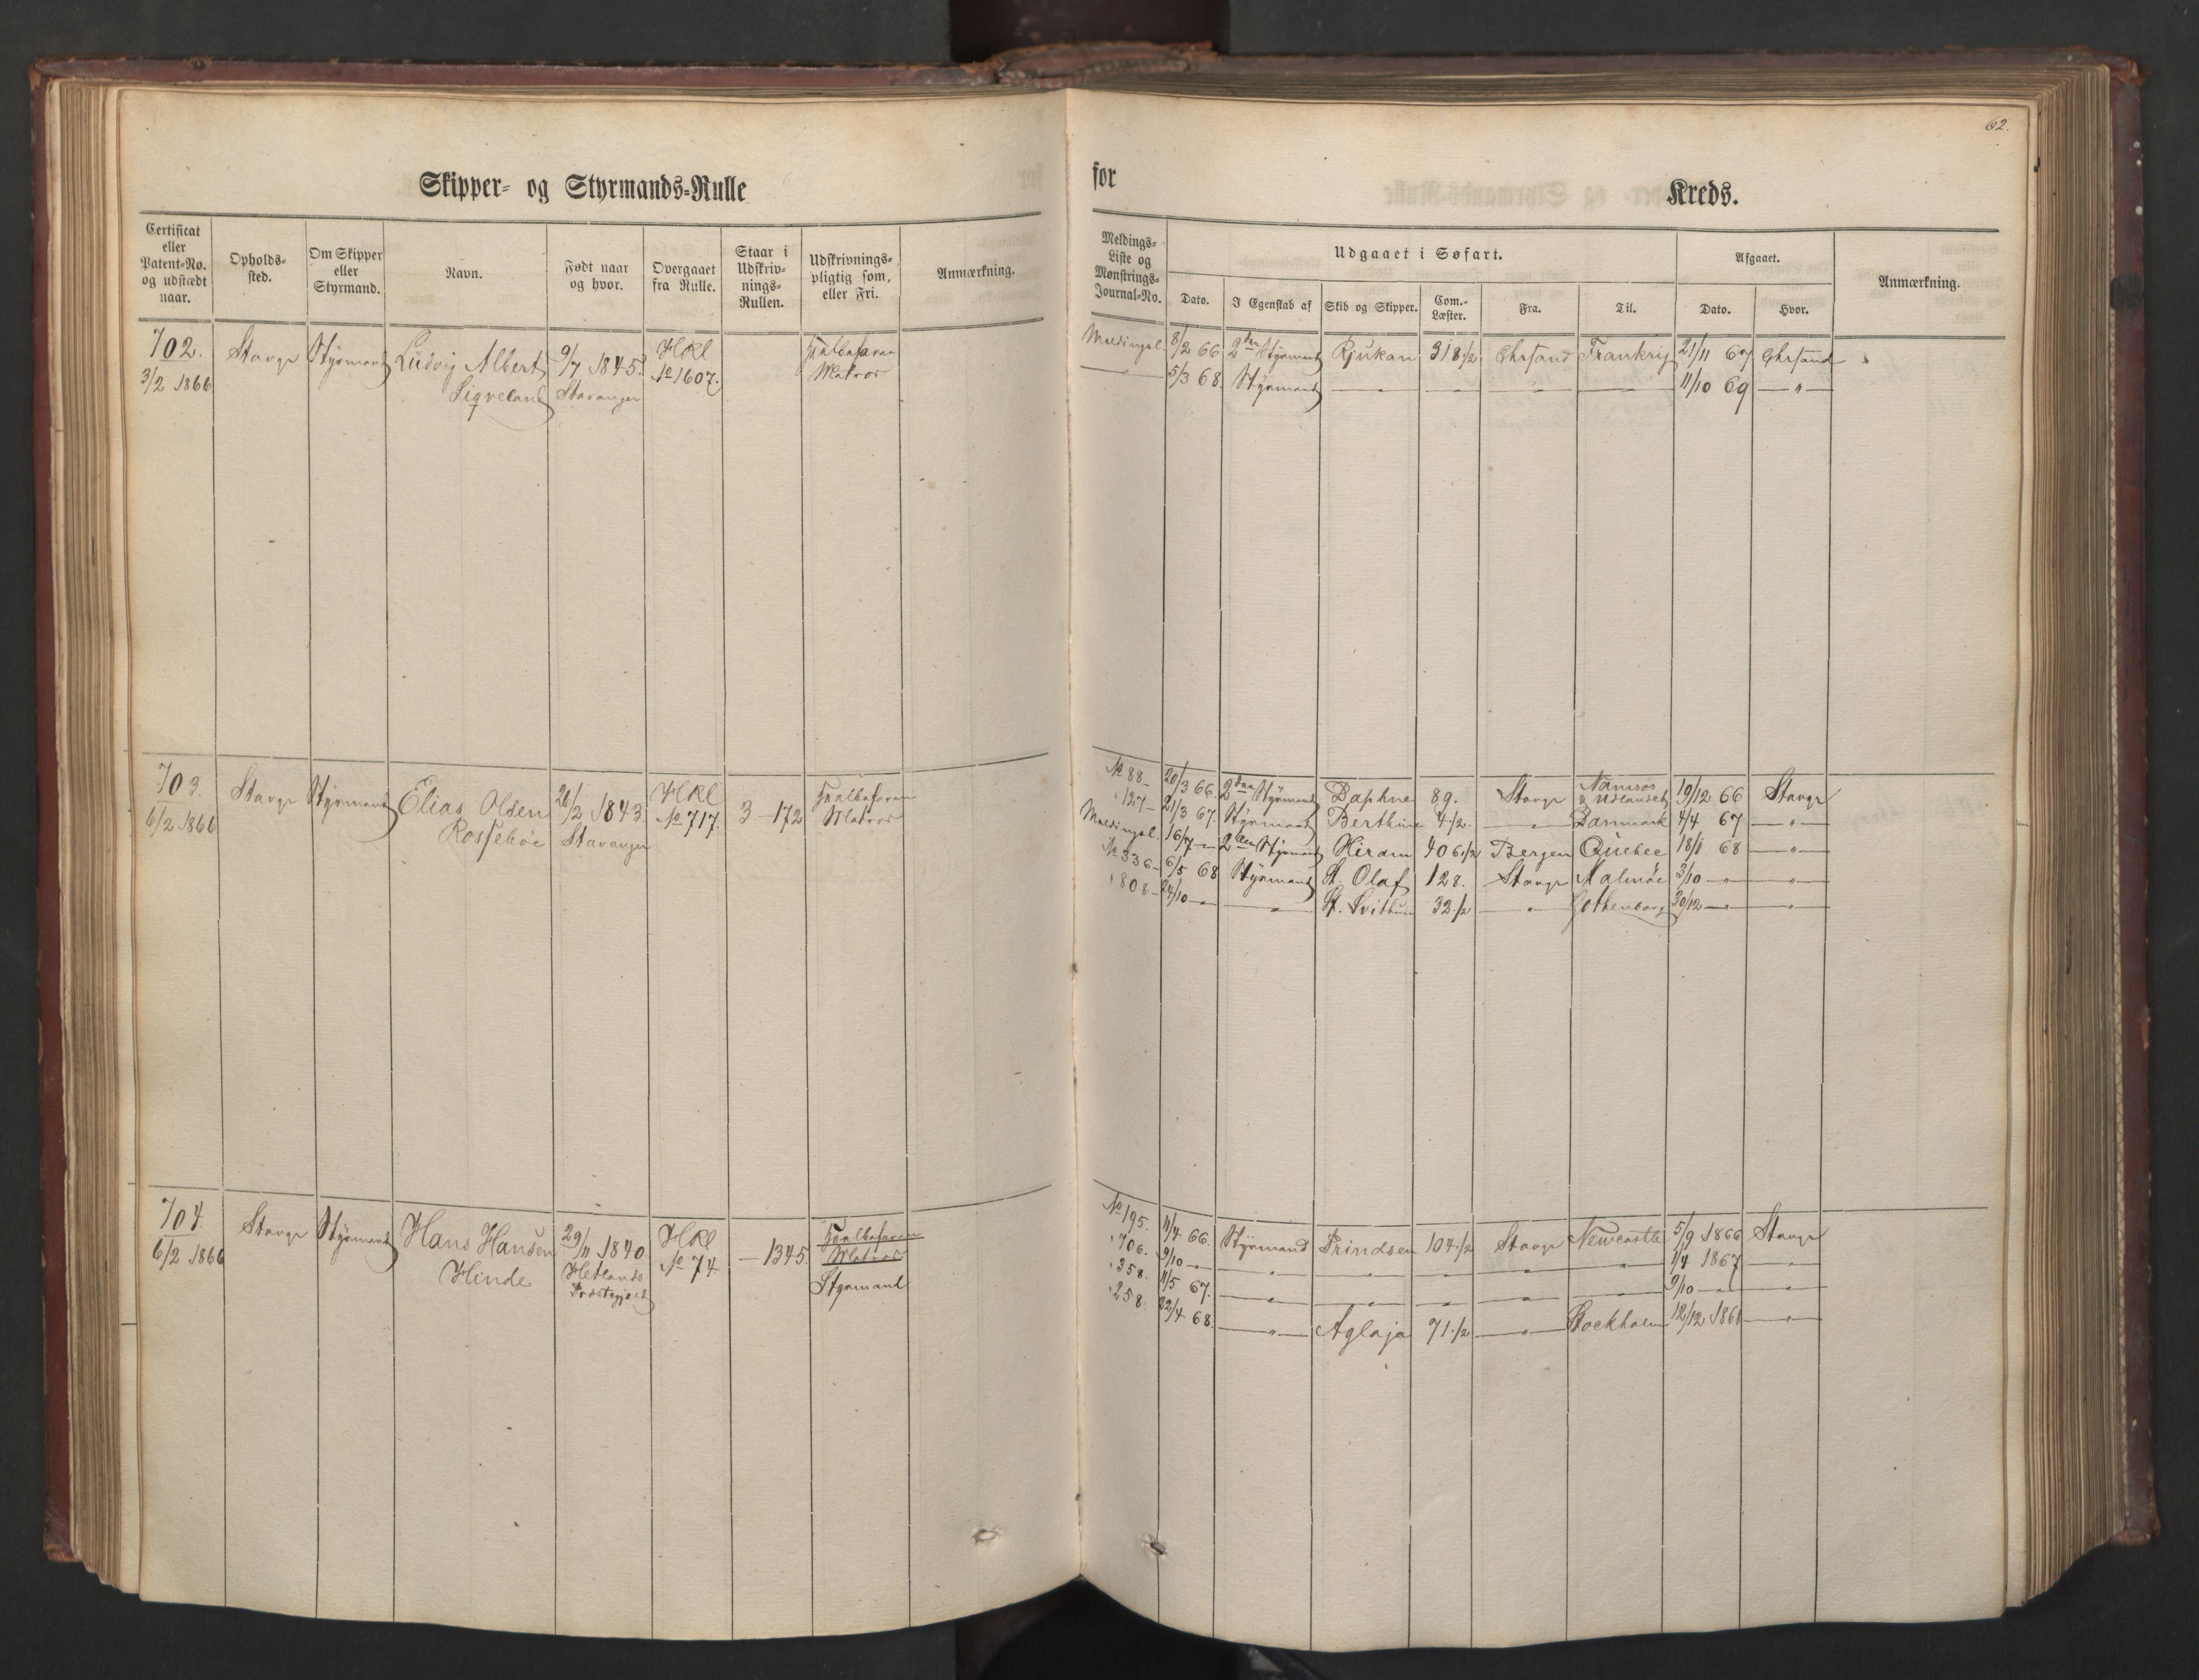 62.
Skipper- og Styrmands-Rulle
for
Kreds.
Certificat eller Patent-No. og udstædt naar.
Opholds-sted.
Om Skipper eller Styrmand.
Navn.
Født naar og hvor.
Overgaaet fra Rulle.
Staar i Udskriv-nings-Rullen.
Udskrivnings-pligtig som, eller Fri.
Anmærkning.
Meldings-Liste og Mønstrings-Journal-No.
Udgaaet i Søfart.
Afgaaet.
Anmærkning.
Dato.
I Egenskab af
Skib og Skipper.
Com.-Læster.
Fra.
Til.
Dato.
Hvor.
702. Stavgr Styrmand Ludvig Albert 9/7 1845. HRl
3/2 1866 Sigveland Stavanger No 1607. Matros
Meldingsl. 8/2 66 2den Styrmand Rjukan 318.½ Chrsand Frankrig 21/11 67 Chrsand
— 5/3 68. Styrmand — — — — 11/10 69 — " —
703. Stavgr Styrmand Elias Olsen 26/2 1843. HRl 3 — 172
6/2 1866 Rossebøe Stavanger No 717. Matros
No 88 — 20/3 66. 2den Styrmand Daphne 89. Stavgr Namsos & Udlandet 19/12 66 Stavgr
" 127 — 21/3 67. Styrmand Berthine 4/2. — " — Danmark 4/4 67 — " —
Meldingsl. 16/7 — 2den Styrmand Hiram 406.½ Bergen Quebec 18/1 68 — " —
No 336 — 6/5 68 Styrmand St. Olaf 128. Stavgr Malmøe 3/10 — " — — " —
" 808 — 24/10 — " — — " — St. Svithun 32.½ — " — Gothenborg 30/12 — " — — " —
704. Stavgr Styrmand Hans Hansen 29/11 1840. HRl — 1345.
6/2 1866 Hinde Hetlands No 74. Matros
Præstegjeld Styrmand
No 195. 11/4 66. Styrmand Prindsen 104.½ Stavgr Newcastle 5/9 1866 Stavgr
" 706. 9/10 — " — — " — — " — — " — — " — — " — 1/4 1867 — " —
" 358. 11/5 67. — " — — " — — " — — " — — " — 9/10 — " — — " —
" 258. 22/4 68. — " — Aglaja 71.½ — " — Stockholm 12/12 1868 — " —